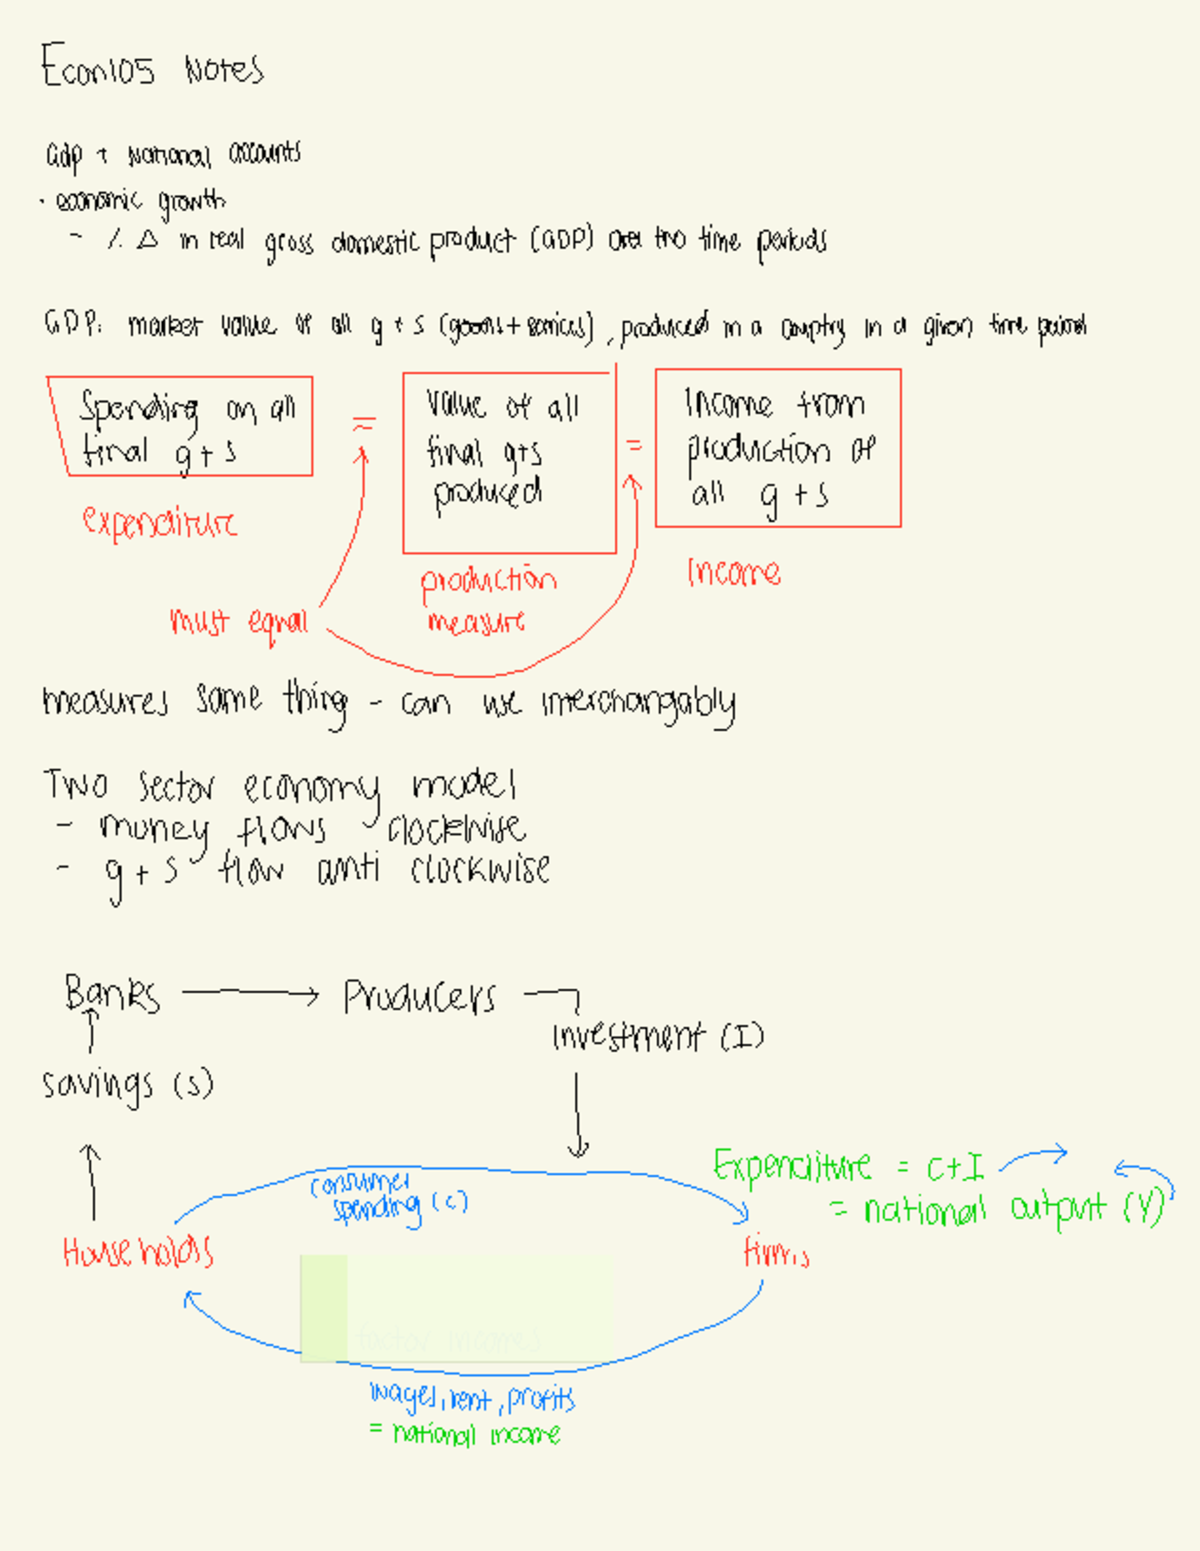 Econ105 Notes
Gdp + National accounts
· economic growth
- % Δ in real gross domestic product (GDP) over two time periods
GDP: market value of all g + s (goods + services), produced in a country in a given time period
Spending on all
final g + s
=
Value of all
final g+s
produced
=
Income from
production of
all g + s
expenditure
production
measure
Income
must equal
measures same thing - can use interchangably
Two sector economy model
- money flows clockwise
- g + s flow anti clockwise
Banks
Producers
investment (I)
savings (s)
consumer
spending (c)
Expenditure = C+I
= national output (Y)
Households
firms
factor incomes
wages, rent, profits
= national income